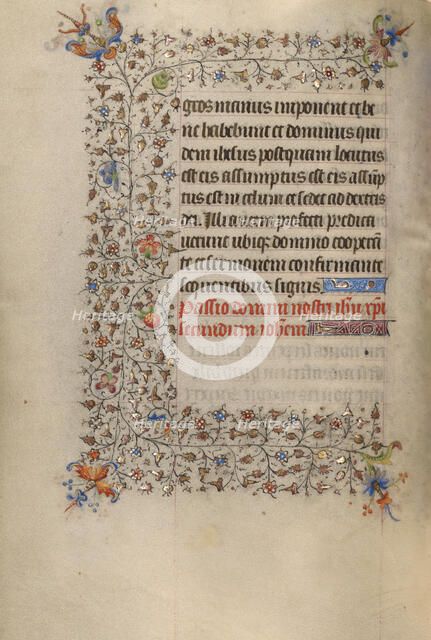 gros manus imponent et be
ne habebunt et dominus qui
dem ihesus postquam locutus
est eis assumptus est eis assūp
tus est in celum et sedet ad dextris
dei. Illi autem profecti predica
uerunt ubiqꝫ domino cooperā
te et sermonem confirmante
sequentibus signis.
Passio domini nostri ihū xp̄i
secundum ioh̄em
Heritage
Heritage
Heritage
Heritage
Heritage
Heritage